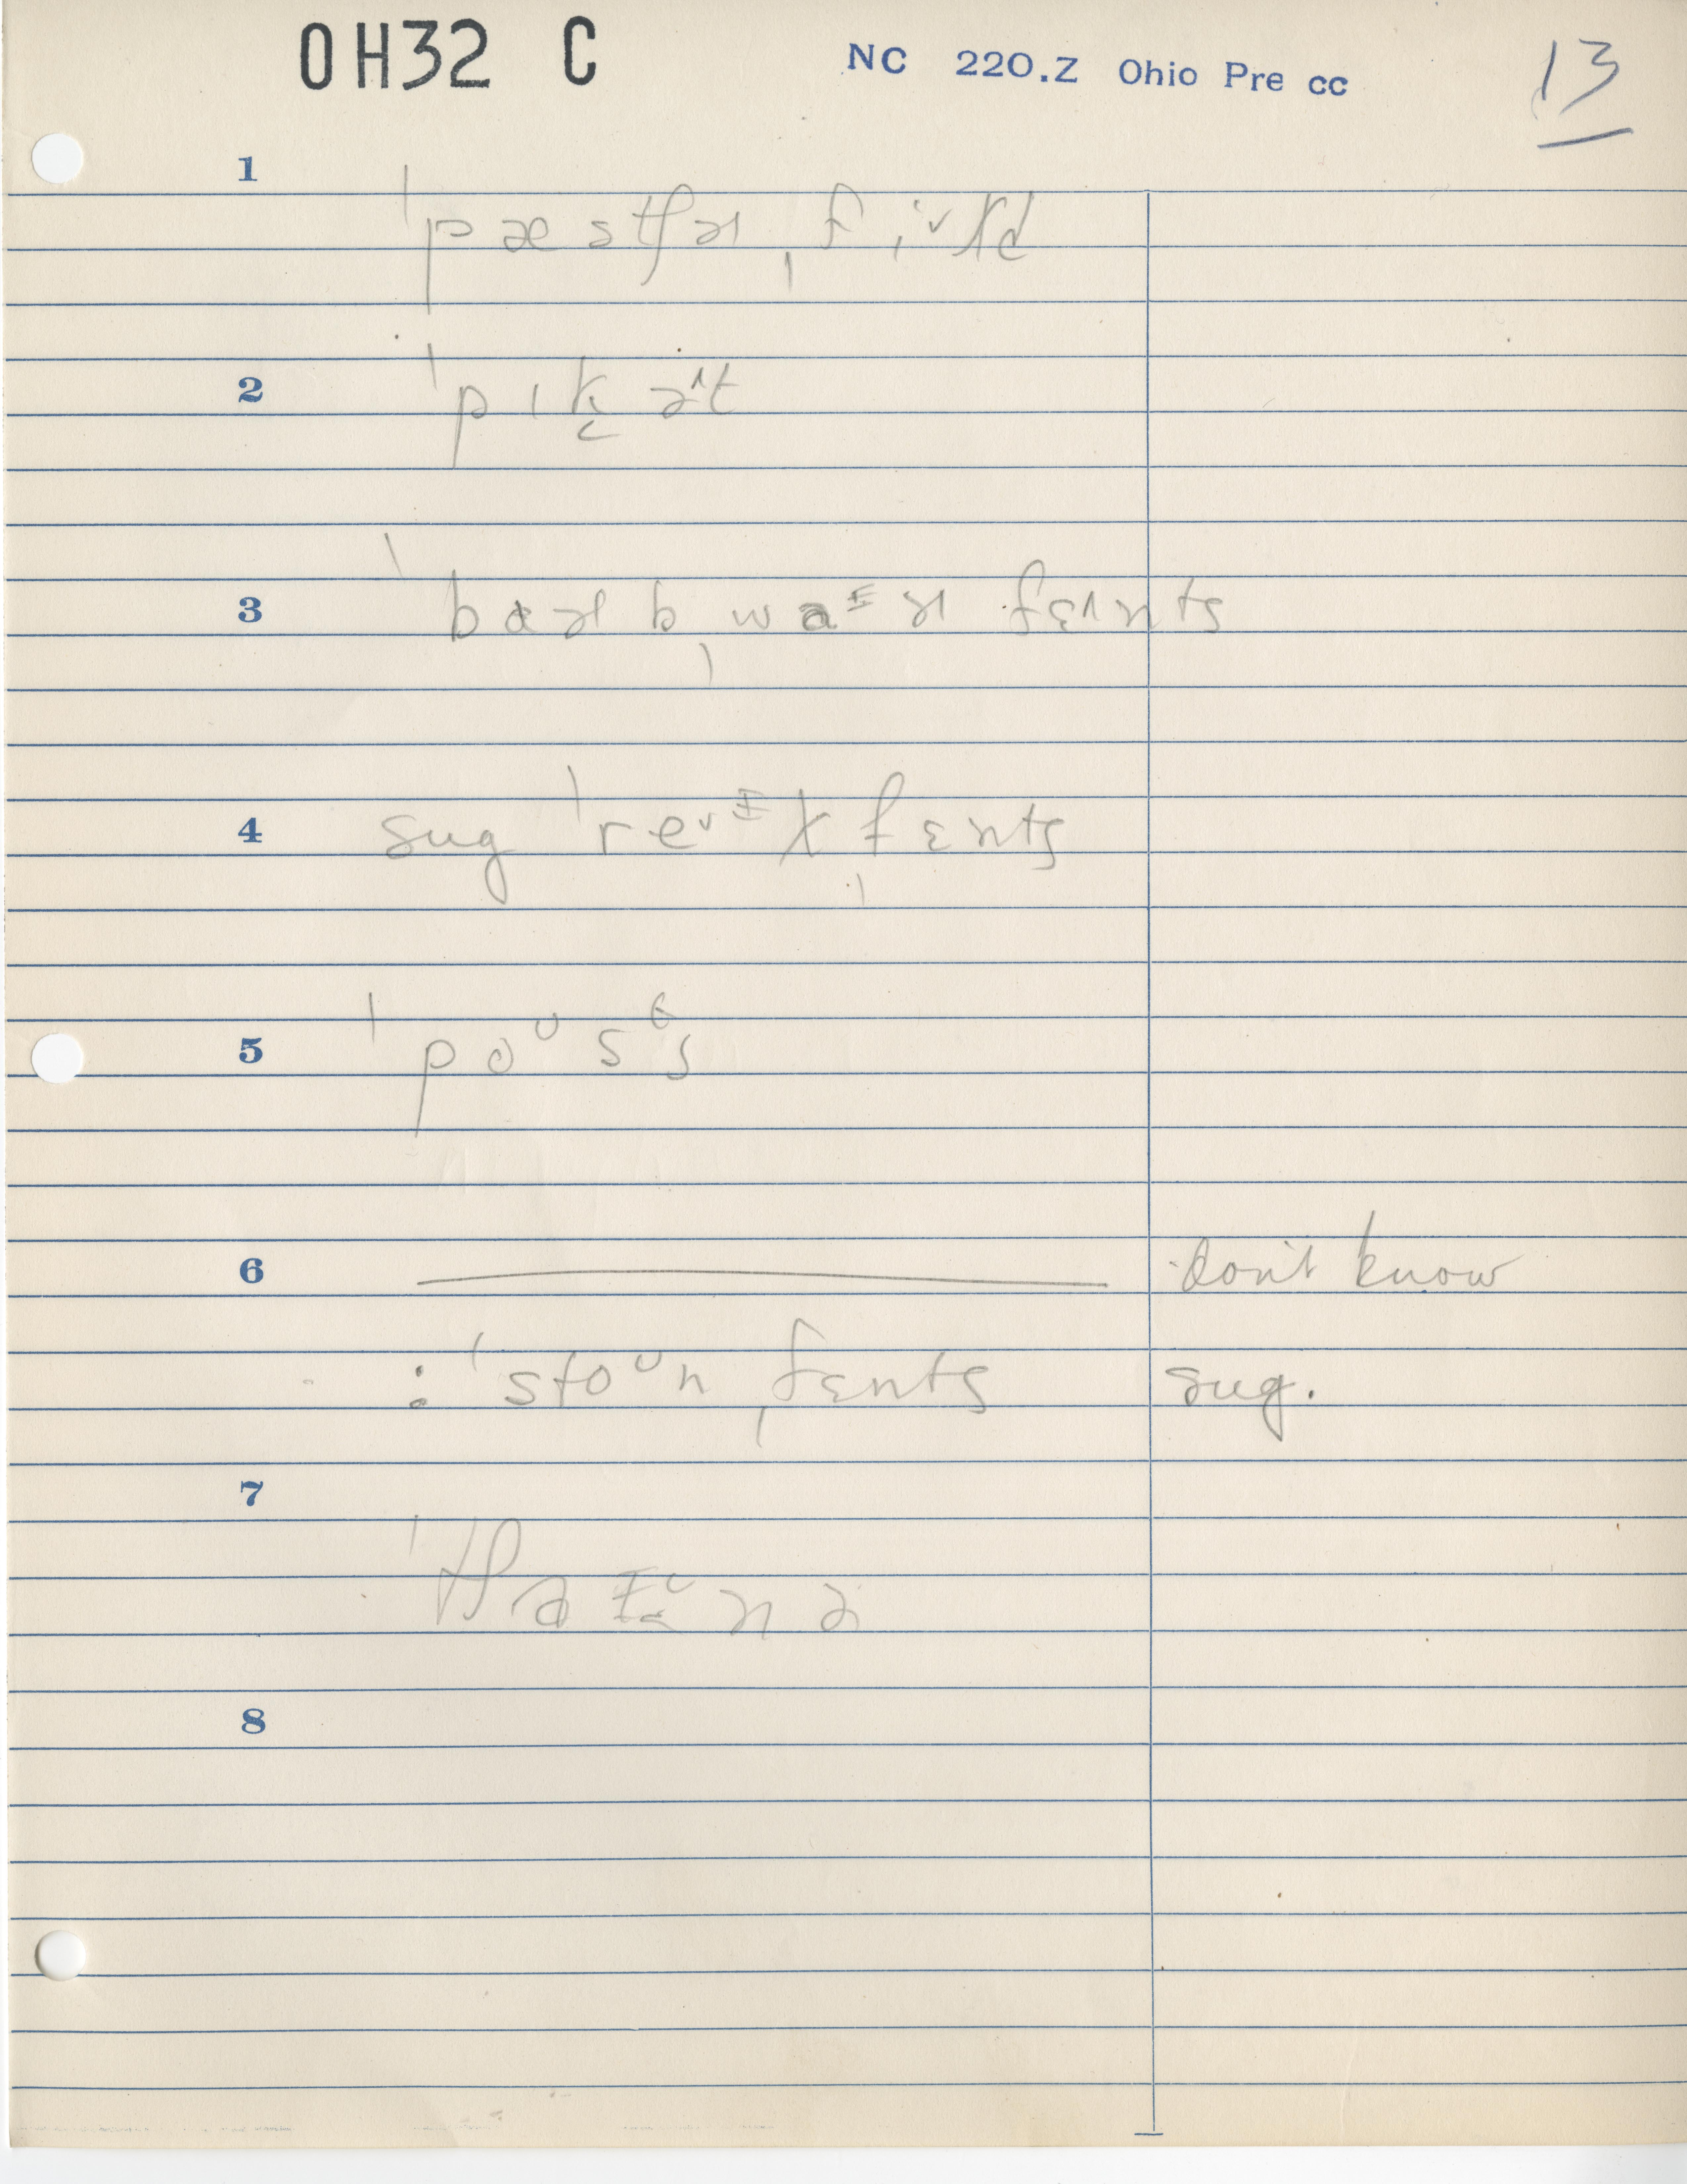 OH32 C NC 220.Z Ohio Pre cc 13
1 ˈpæstʃɚˌfiᵛɫd
2 ˈpɪk̬ə^t
3 ˈbɑɚbˌwaᴵɚ fɛ^nts
4 sug ˈreᵛᴵɫˌfɛnts
5 ˈpoᵁsᵗs
6 don't know
: ˈstoᵁnˌfɛnts sug.
7
8